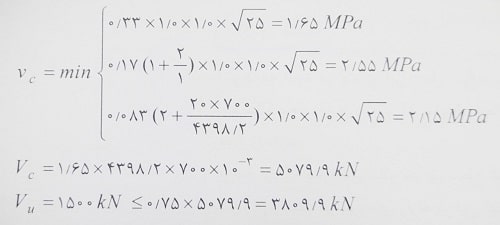 ۰/۳۳ × ۱/۰ × ۱/۰ × √۲۵ = ۱/۶۵ MPa
v_c = min { ۰/۱۷ (۱ + ۲/۱) × ۱/۰ × ۱/۰ × √۲۵ = ۲/۵۵ MPa
۰/۰۸۳ (۲ + (۲۰ × ۷۰۰)/(۴۳۹۸/۲)) × ۱/۰ × ۱/۰ × √۲۵ = ۲/۱۵ MPa
V_c = ۱/۶۵ × ۴۳۹۸/۲ × ۷۰۰ × ۱۰^−۳ = ۵۰۷۹/۹ kN
V_u = ۱۵۰۰ kN ≤ ۰/۷۵ × ۵۰۷۹/۹ = ۳۸۰۹/۹ kN